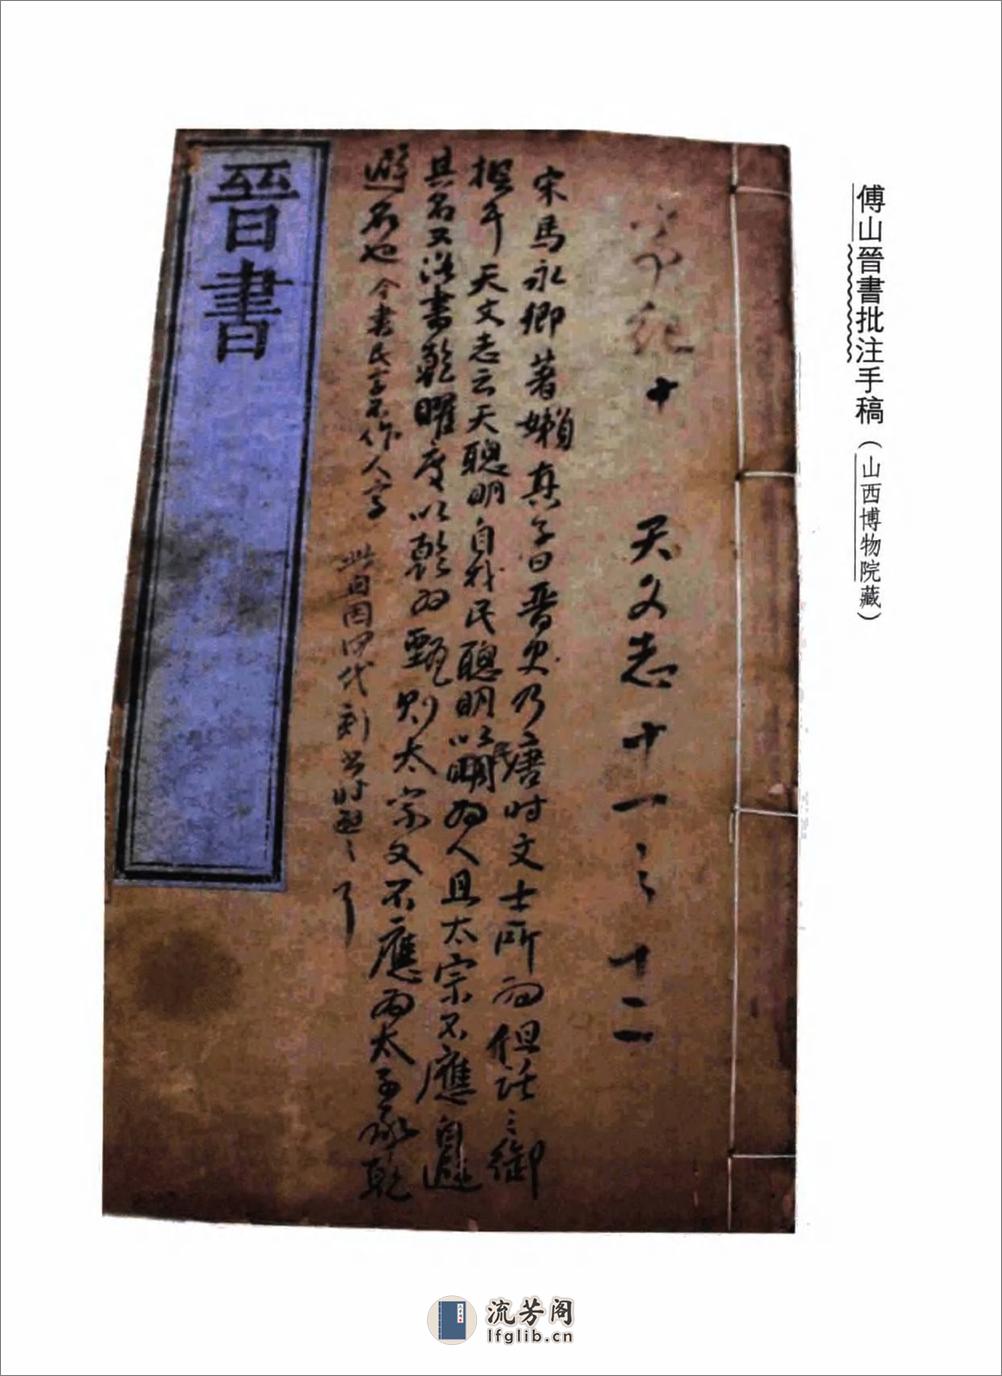 傅山晉書批注手稿（山西博物院藏）
帝紀十 天文志十一之十二
宋馬永卿著嬾真子曰晉史乃唐時文士所爲但託之御
撰耳天文志云天聰明自我民聰明以民爲人且太宗不應自避
其名又洛書乾曜度以乾爲甄則太宗又不應爲太子承乾
避名也今書民字不作人字
此自因四代刻書時
晉書
流芳阁
lfglib.cn